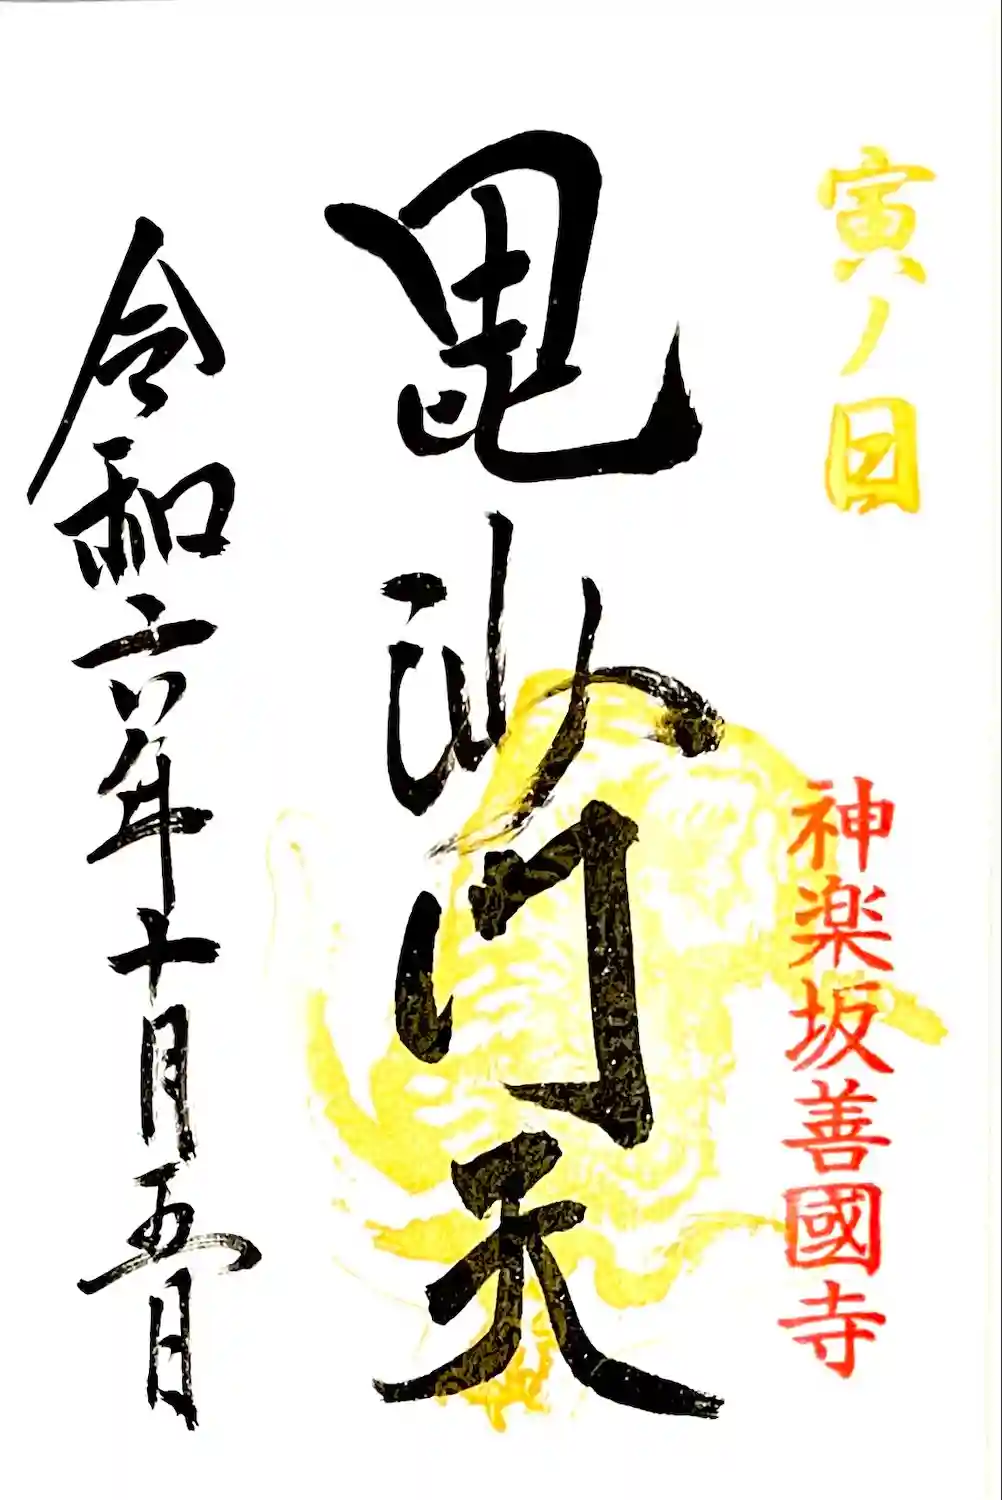 寅ノ日
神楽坂善國寺
毘沙门天
令和六年十月五日